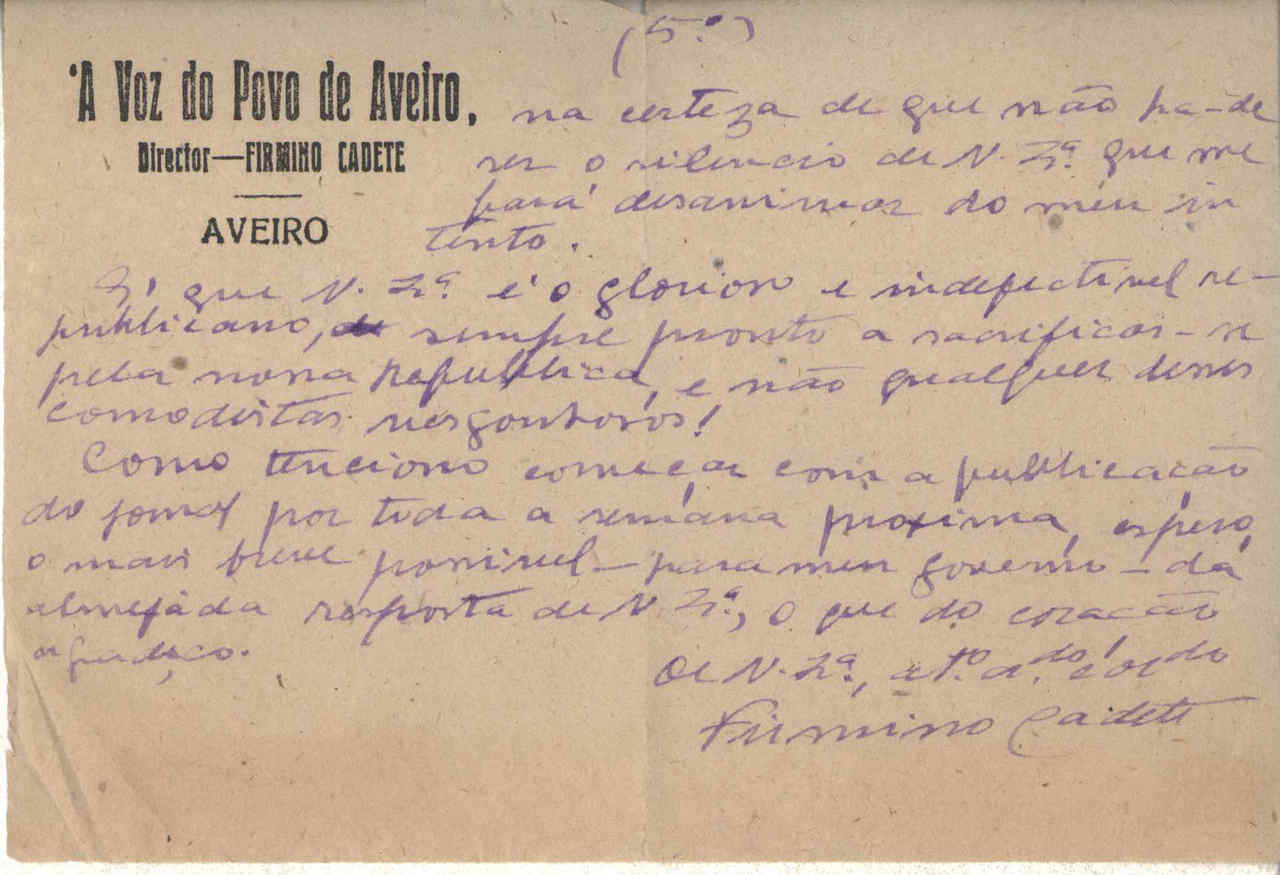 (5.º)
"A Voz do Povo de Aveiro,
Director—FIRMINO CADETE
AVEIRO
na certeza de que não ha-de
ser o silencio de V. Ex.ª que me
fará desanimar do meu in
tento.
É que V. Ex.ª é o glorioso e indefectivel re-
publicano, sempre pronto a sacrificar-se
pela nossa Republica, e não qualquer desses
comodistas vergonhosos!
Como tenciono começar com a publicação
do jornal por toda a semana proxima, espero,
o mais breve possivel—para meu governo—da
almejada resposta de V. Ex.ª, o que do coração
agradeço.
De V. Ex.ª, at.º
Firmino Cadete